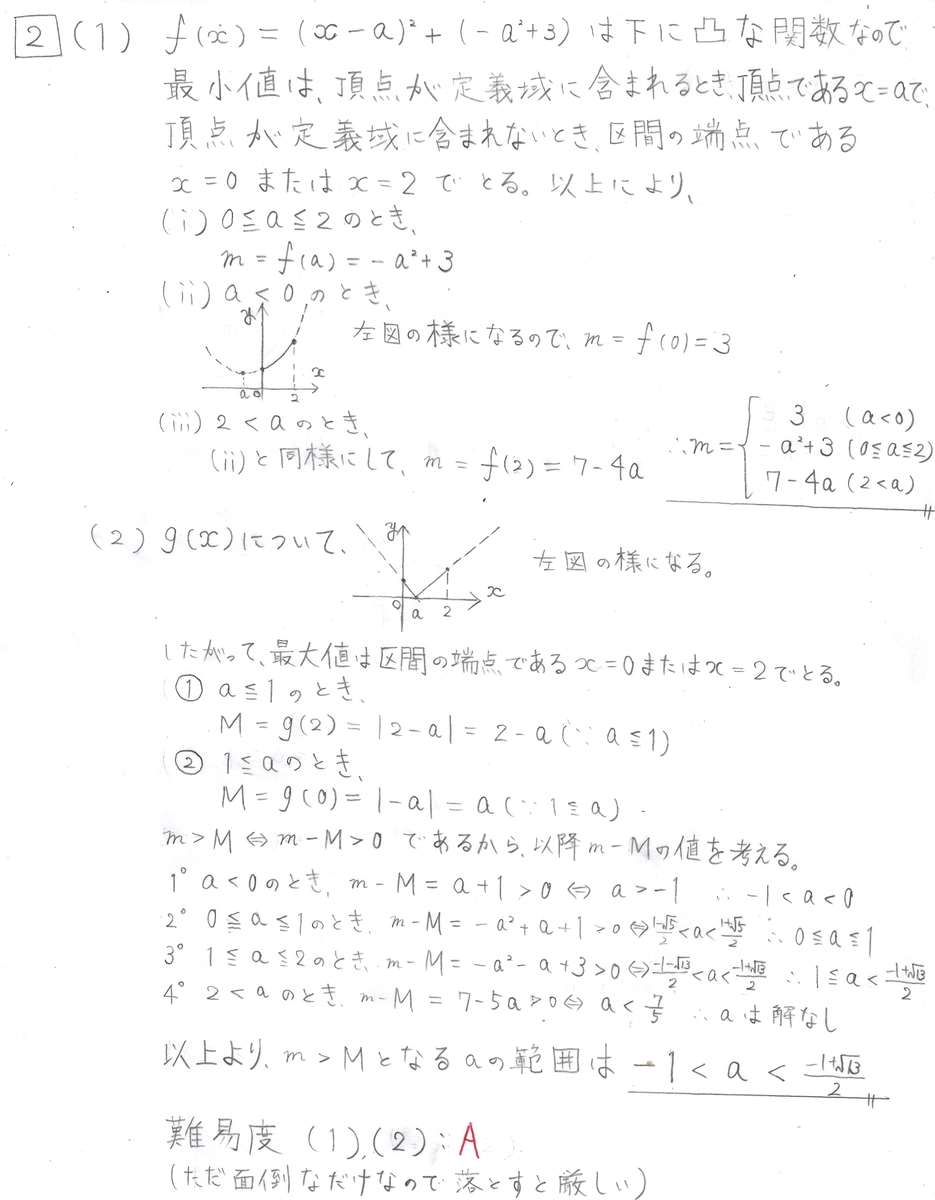 2 (1) f(x) = (x-a)² + (-a²+3) は下に凸な関数なので
最小値は、頂点が定義域に含まれるとき、頂点であるx=aで、
頂点が定義域に含まれないとき、区間の端点である
x=0 または x=2 でとる。以上により、
(i) 0≦a≦2のとき、
m = f(a) = -a²+3
(ii) a<0のとき、
y
左図の様になるので、m = f(0) = 3
x
a 0 2
(iii) 2<aのとき、
(ii)と同様にして、m = f(2) = 7-4a
∴m = { 3 (a<0)
-a²+3 (0≦a≦2)
7-4a (2<a)
(2) g(x)について、
y
左図の様になる。
x
0 a 2
したがって、最大値は区間の端点であるx=0またはx=2でとる。
① a≦1のとき、
M = g(2) = |2-a| = 2-a (∵ a≦1)
② 1≦aのとき、
M = g(0) = |-a| = a (∵ 1≦a).
m>M ⇔ m-M>0 であるから、以降m-Mの値を考える。
1° a<0のとき、m-M = a+1 >0 ⇔ a>-1 ∴ -1<a<0
2° 0≦a≦1のとき、m-M = -a²+a+1>0 ⇔ (1-√5)/2<a<(1+√5)/2 ∴ 0≦a≦1
3° 1≦a≦2のとき、m-M = -a²-a+3>0 ⇔ (-1-√13)/2<a<(-1+√13)/2 ∴ 1≦a<(-1+√13)/2
4° 2<aのとき、m-M = 7-5a>0 ⇔ a<7/5 ∴aは解なし
以上より、m>Mとなるaの範囲は -1<a<(-1+√13)/2
難易度 (1),(2):A
(ただ面倒なだけなので落とすと厳しい)